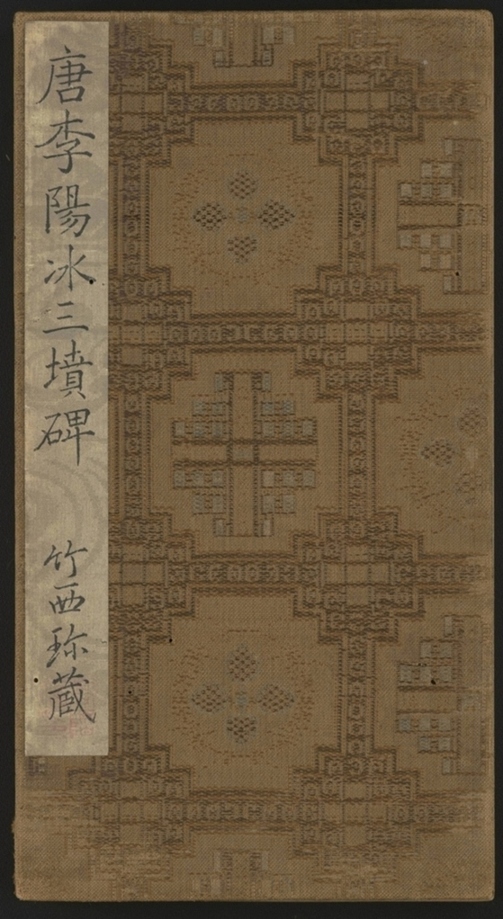 唐李陽冰三墳碑
竹西珎藏